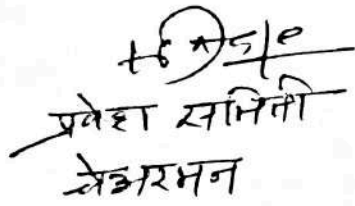 प्रवेश समिती
चेअरमन